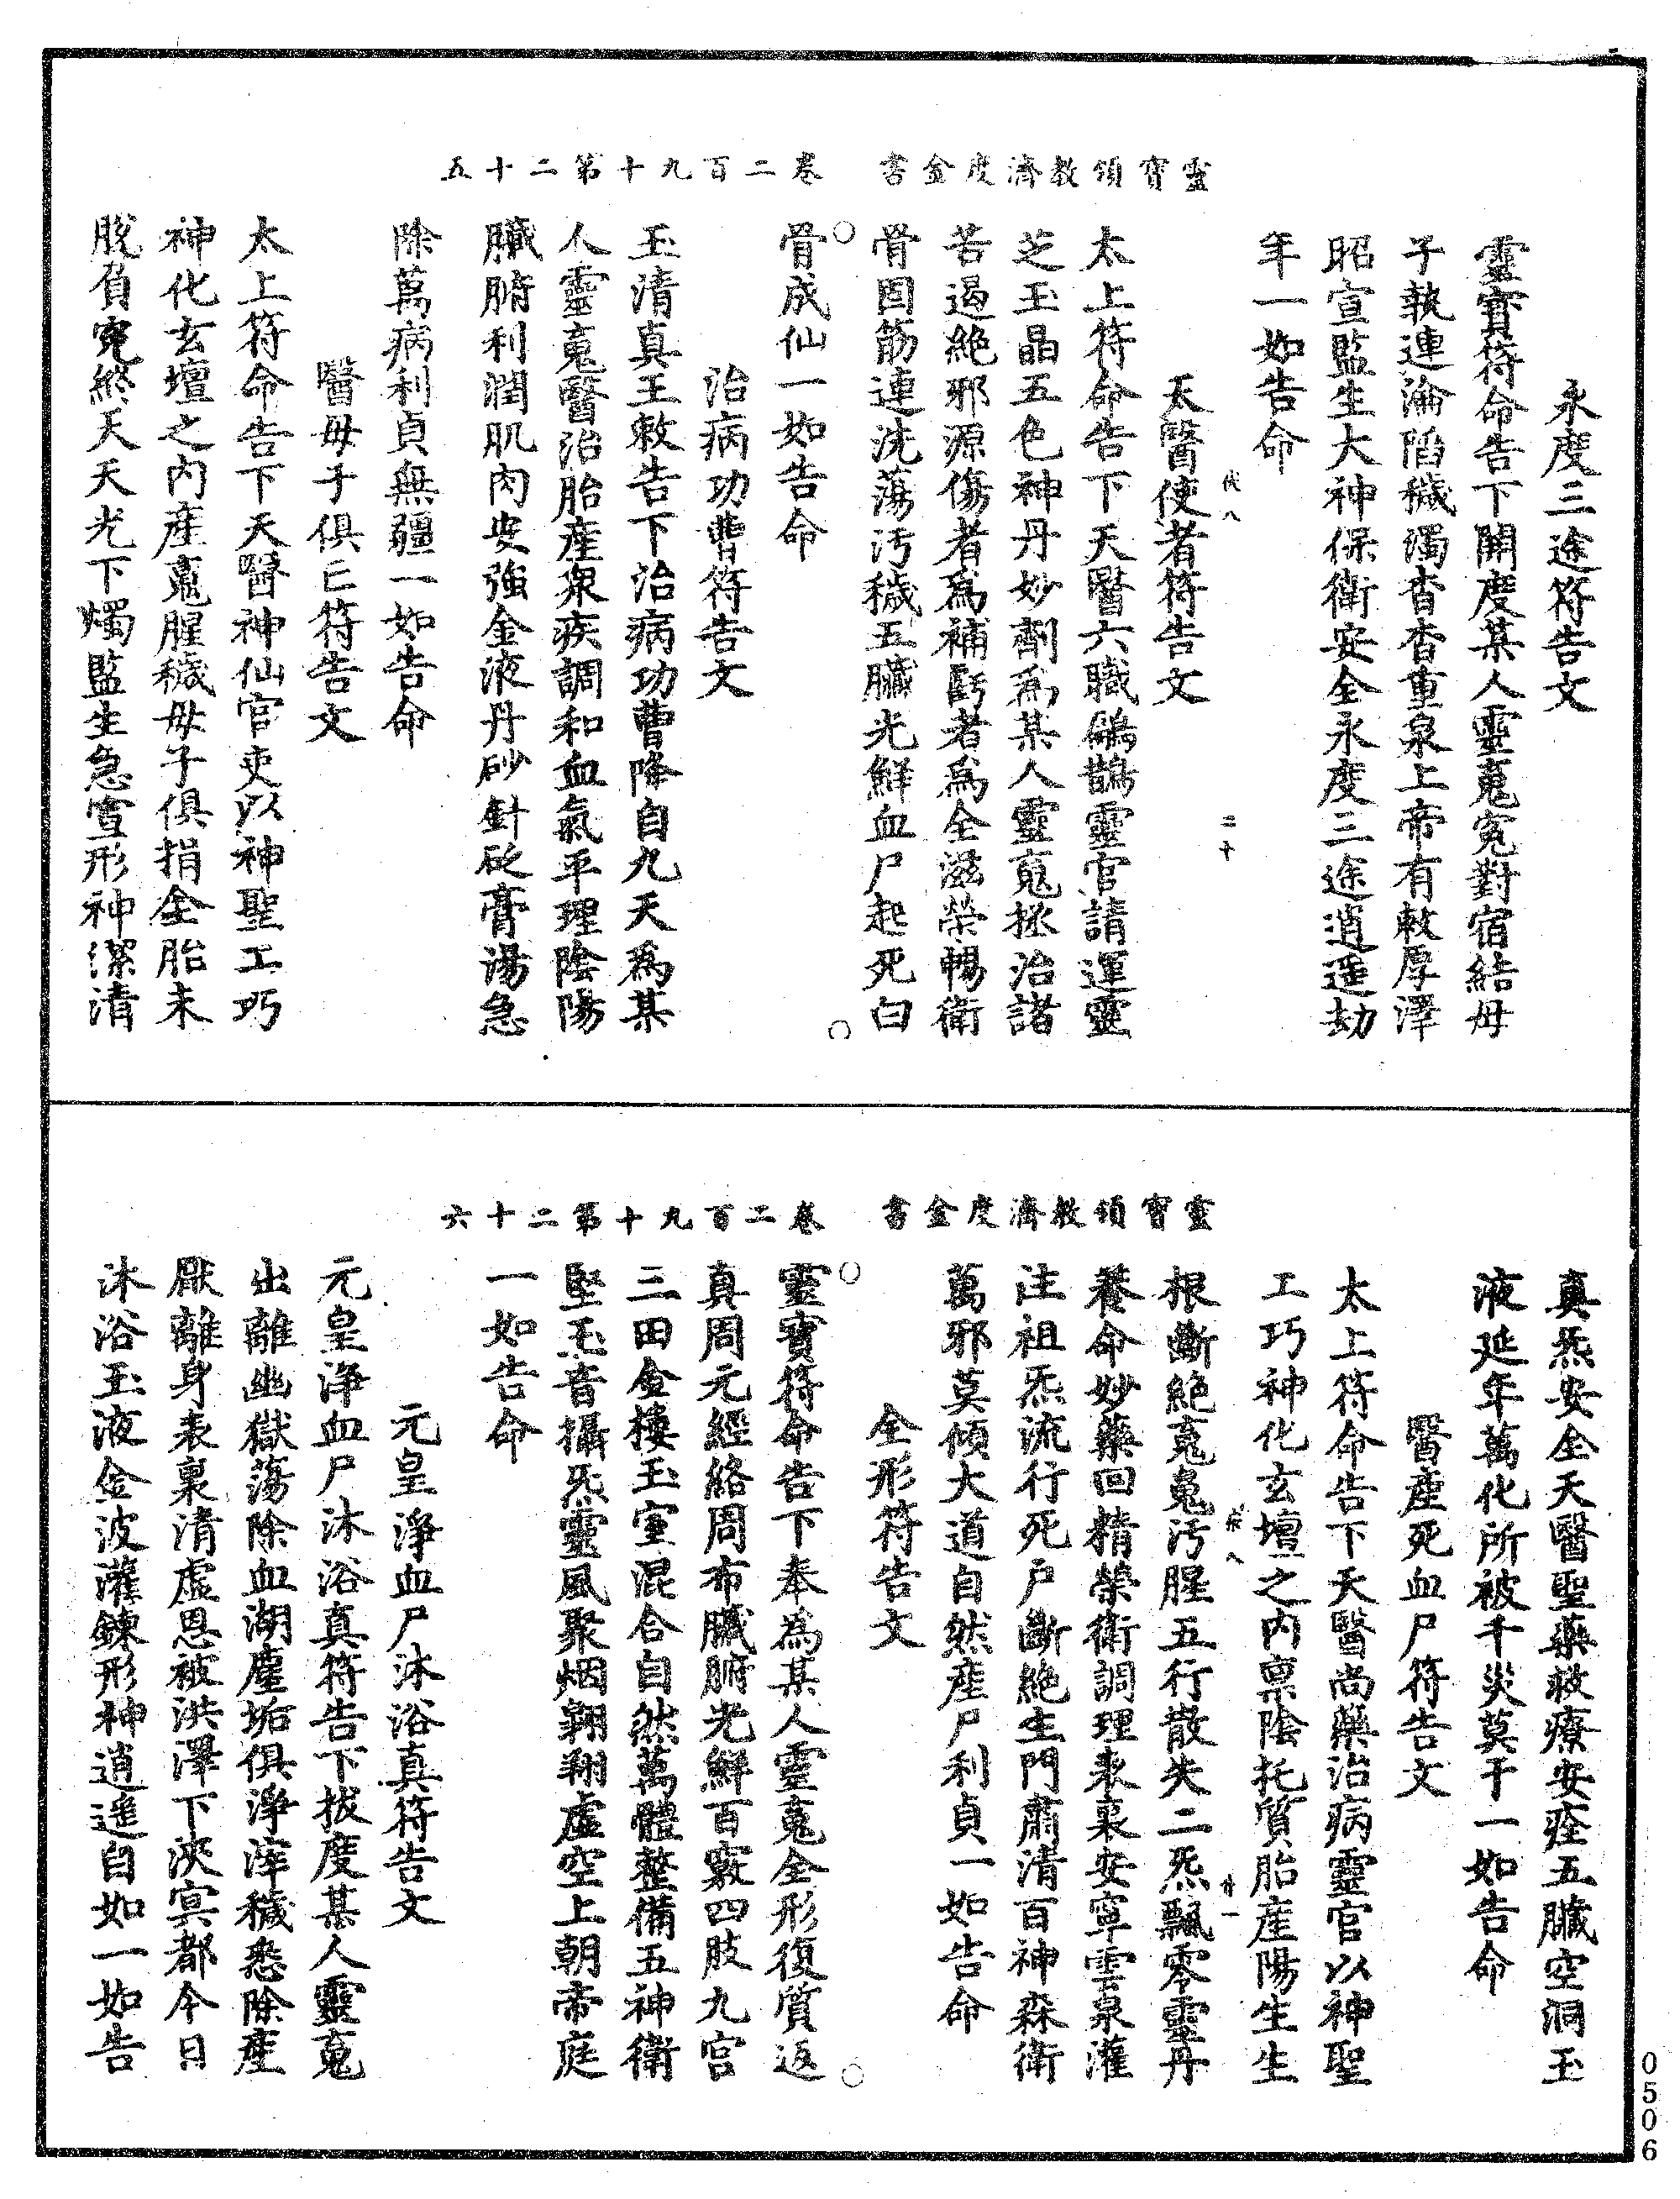 靈寶領教濟度金書　卷二百九十第二十五
永度三途符告文
靈寶符命告下開度某人靈䰟𡨚對宿結母
子執連淪䧟穢濁杳杳重泉上帝有敕厚澤
昭宣監生大神保衛安全永度三途逍遥劫
年一如告命
天醫使者符告文
八
二十
太上符命告下天醫六職鷊鵲靈官請運靈
芝玉晶五色神丹妙劑爲某人靈䰟拯治諸
苦遏絶邪源傷者爲補虧者爲全滋榮暢衛
骨固筋連洗蕩汚穢五臟光鮮血尸起死白
骨成仙一如告命
治病功曹符告文
玉清真王敕告下治病功曹降自九天爲某
人靈䰟醫治胎產衆疾調和血氣平理陰陽
臟腑利潤肌肉安強金液丹砂針砭膏湯急
除萬病利貞無疆一如告命
醫母子俱亡符告文
太上符命告下天醫神仙官吏以神聖工巧
神化玄壇之内產䰟腥穢母子俱捐全胎未
脫負𡨚終天天光下燭監生急宣形神潔清
靈寶領教濟度金書　卷二百九十第二十六
真炁安全天醫聖藥救療安痊五臟空洞玉
液延年萬化所被千災莫干一如告命
醫產死血尸符告文
太上符命告下天醫尚藥治病靈官以神聖
工巧神化玄壇之内稟陰托質胎產陽生生
八
根斷絶䰟䰟汚腥五行散失二炁飄零靈丹
養命妙藥回精榮衛調理表裏安寧雲泉灌
注祖炁流行死户斷絶生門肅清百神森衛
萬邪莫傾大道自然產尸利貞一如告命
全形符告文
靈寶符命告下奉為某人靈䰟全形復質返
真周元經絡周布臟腑光鮮百竅四肢九宮
三田金樓玉室混合自然萬體整備五神衛
堅玉音攝炁靈風聚烟翱翔虛空上朝帝庭
一如告命
元皇浄血尸沐浴真符告文
元皇浄血尸沐浴真符告下拔度某人靈䰟
出離幽獄蕩除血湖塵垢俱淨滓穢悉除產
厭離身表裏清虛恩被洪澤下浹㝠都今日
沐浴玉液金波灌鍊形神逍遥自如一如告
0506